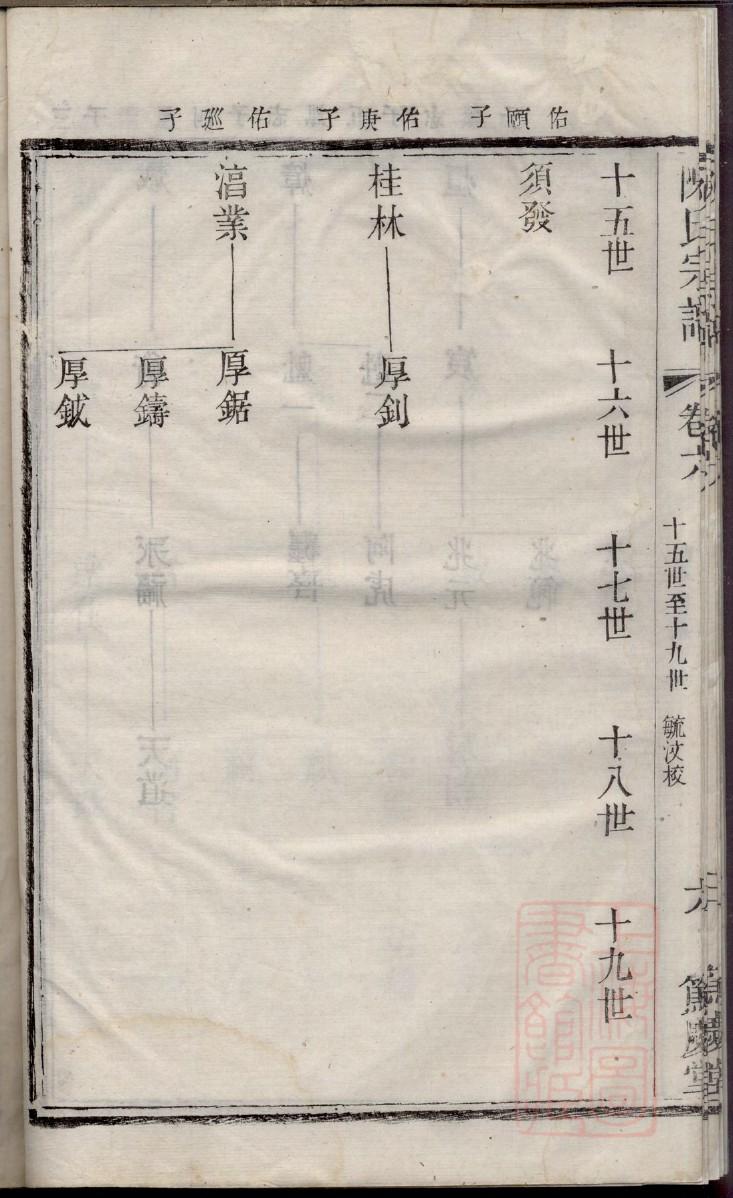 陳氏宗譜
卷六
十五世至十九世
毓汶校
篤慶堂
十五世 十六世 十七世 十八世 十九世
佑頤子
須發
佑庚子
桂林 厚釗
佑廵子
湻業 厚鋸
厚鑄
厚鉞